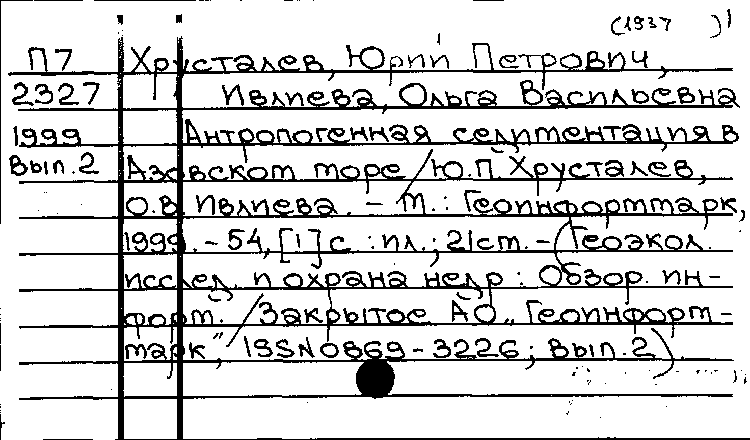 (1937 )
П7 Хрусталев, Юрий Петрович,
2327 Ивлиева, Ольга Васильевна
1999 Антропогенная седиментация в
Вып.2 Азовском море / Ю.П. Хрусталев,
О.В. Ивлиева. - М.: Геоинформмарк,
1999. - 54, [1] с : ил.; 21 см. - (Геоэкол.
исслед. и охрана недр : Обзор. ин-
форм. / Закрытое АО „Геоинформ-
марк”, ISSN 0869-3226; Вып. 2).